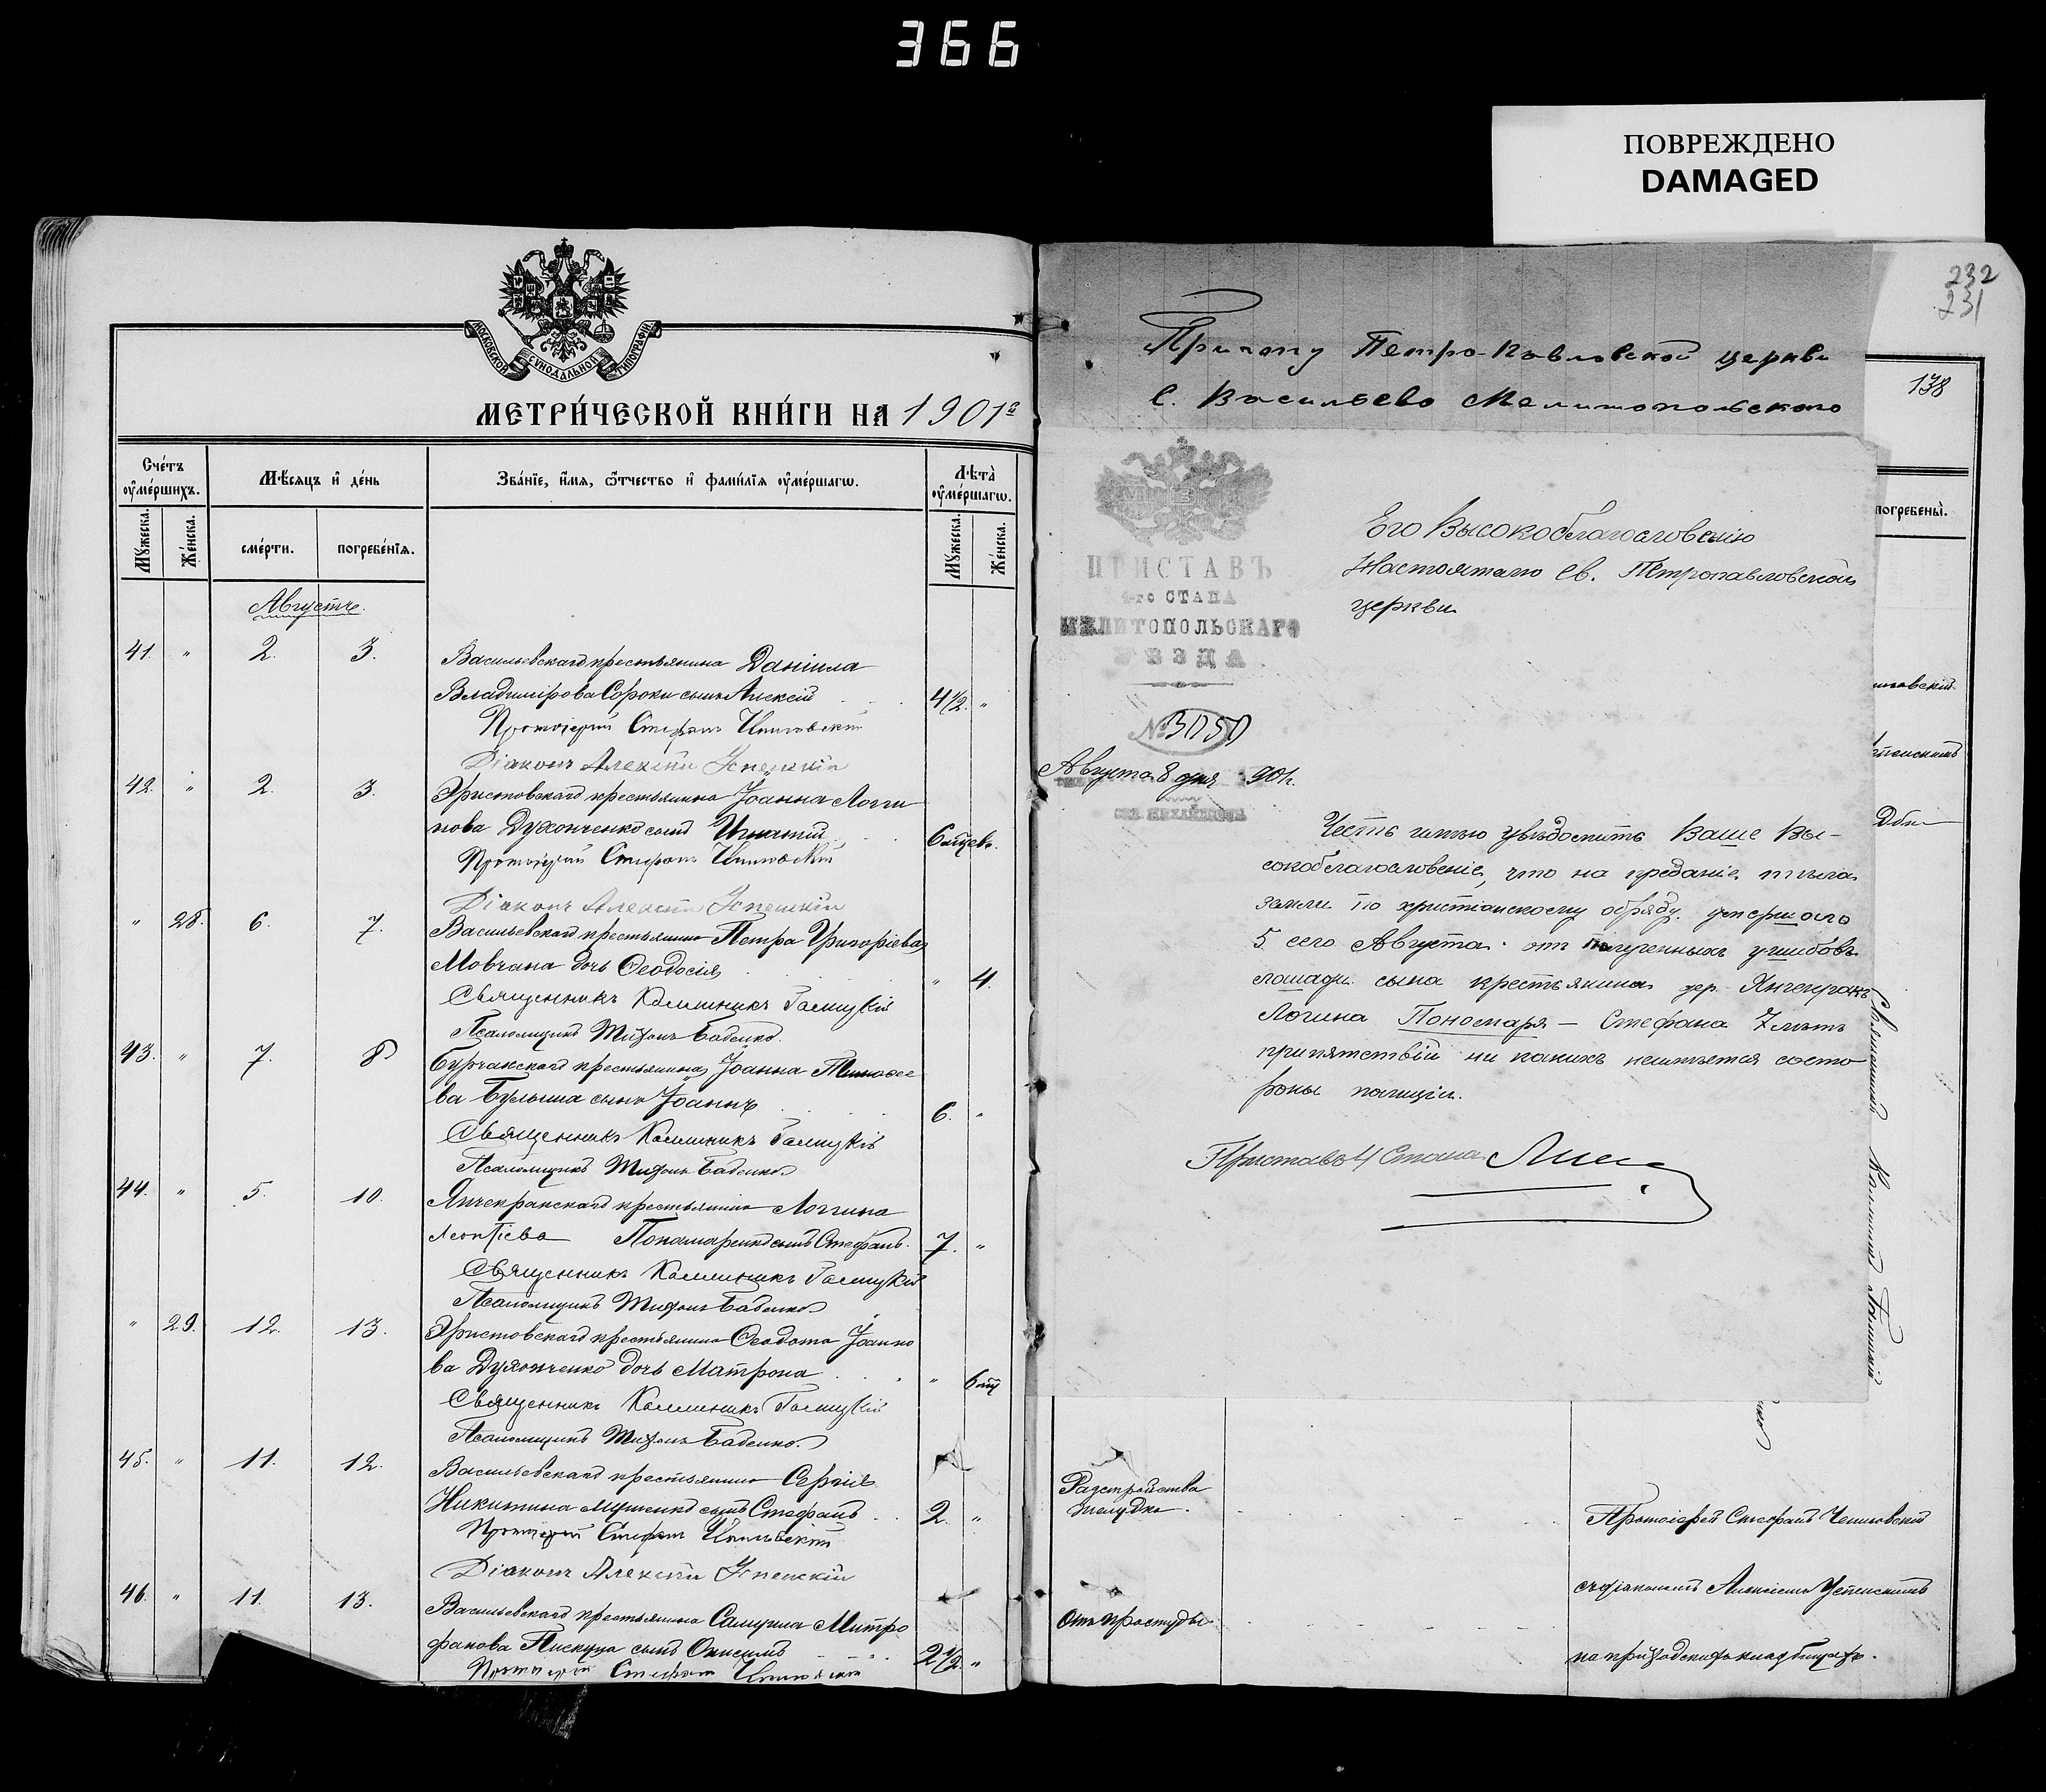 366
ПОВРЕЖДЕНО
DAMAGED
МОСКОВСКОЙ СѴНОДАЛЬНОЙ ТИПОГРАФІИ
МЕТРИ́ЧЕСКОЙ КНИ́ГИ НА 1901 г
Сче́тъ ᲂу҆ме́ршихъ.
Мѣ́сяцъ и҆ де́нь
Зва́нїе, и҆́мя, ѻ҆́тчество и҆ фами́лїя ᲂу҆ме́ршагѡ.
Лѣ́та ᲂу҆ме́ршагѡ.
Мꙋ́жеска.
Же́нска.
сме́рти.
погребе́нїя.
Мꙋ́жеска.
Же́нска.
Августъ.
41. " 2. 3. Васильевскаго крестьянина Даніила
Владимірова Сороки сынъ Алексій 4½. "
Протоіерей Стефанъ
Діаконъ Алексій Успенскій
42. " 2. 3. Христовскаго крестьянина Іоанна Логги
нова Духонченко сынъ Игнатій 6 мѣсев.
Протоіерей Стефанъ
Діаконъ Алексій Успенскій
" 28. 6. 7. Васильевскаго крестьянина Петра Григоріева
Мовчана дочь Ѳеодосія " 4.
Священникъ Каллиникъ Галицкій
Псаломщикъ Тихонъ Баденко
43. " 7. 8 Бурчакскаго крестьянина Іоанна Тимоѳее
ва Бульина сынъ Іоаннъ 6. "
Священникъ Каллиникъ Галицкій
Псаломщикъ Тихонъ Баденко
44. " 5. 10. Янчекракскаго крестьянина Логгина
Леонтіева Понамаренко сынъ Стефанъ. 7. "
Священникъ Каллиникъ Галицкій
Псаломщикъ Тихонъ Баденко
" 29. 12. 13. Христовскаго крестьянина Ѳеодота Іоанно
ва Духонченко дочь Матрона " 6 мѣс
Священникъ Каллиникъ Галицкій
Псаломщикъ Тихонъ Баденко.
45. " 11. 12. Васильевскаго крестьянина Сергія
Никитина сынъ Стефанъ 2. "
Протоіерей Стефанъ
Діаконъ Алексій Успенскій
46. " 11. 13. Васильевскаго крестьянина Самуила Митро
фанова Пискуна сынъ Онисимъ 2½. "
Протоіерей Стефанъ
232
231
138
Причту Петро-Павловской церкви
С. Васильево Мелитопольскаго
погребены̀.
ПРИСТАВЪ
4-го СТАНА
МЕЛИТОПОЛЬСКАГО
УѢЗДА
№ 3050
Августа 8 дня 1901 г.
СЕЛ. МИХАЙЛОВКА
Его Высокоблагословенію
Настоятелю Св. Петропавловской
церкви
Честь имѣю увѣдомить Ваше Вы-
сокоблагословеніе, что на преданіе тѣла
земли по христіанскому обряду умершаго
5 сего Августа отъ полученныхъ ушибовъ
лошади сына крестьянина дер. Янчекракъ
Логина Пономаря – Стефана 7 лѣтъ
припятствій ни какихъ неимѣется состо
роны полиціи.
Приставъ 4 Стана
Священникъ Каллиникъ Галицкій
Разстройства
желудка.
Протоіерей Стефанъ
съ діакономъ Алексіемъ Успенскимъ
Отъ простуды
на приходскомъ кладбищѣ.